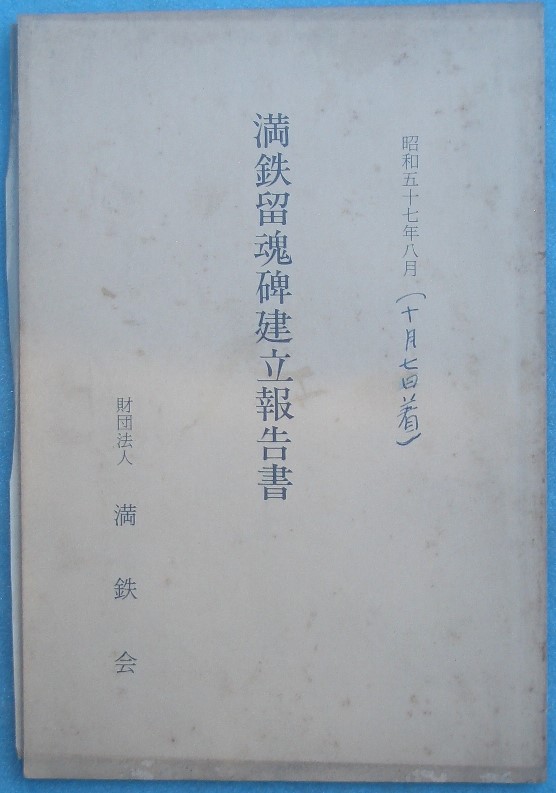 昭和五十七年八月（十月七日着）
満鉄留魂碑建立報告書
財団法人 満鉄会